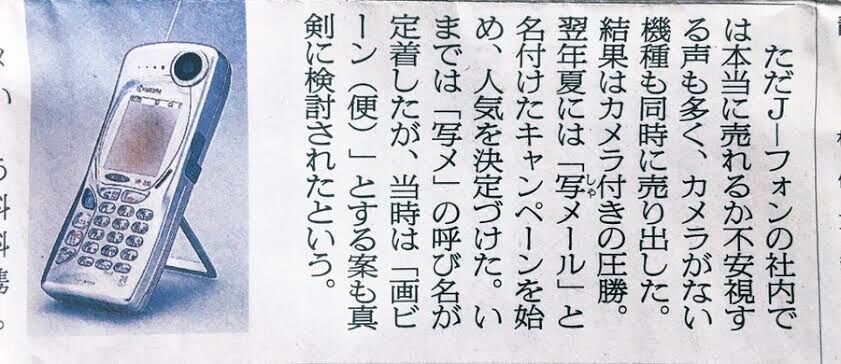 ただＪ―フォンの社内で
は本当に売れるか不安視す
る声も多く、カメラがない
機種も同時に売り出した。
結果はカメラ付きの圧勝。
翌年夏には「写メール」と
しゃ
名付けたキャンペーンを始
め、人気を決定づけた。い
までは「写メ」の呼び名が
定着したが、当時は「画ビ
ーン（便）」とする案も真
剣に検討されたという。
KYOCERA